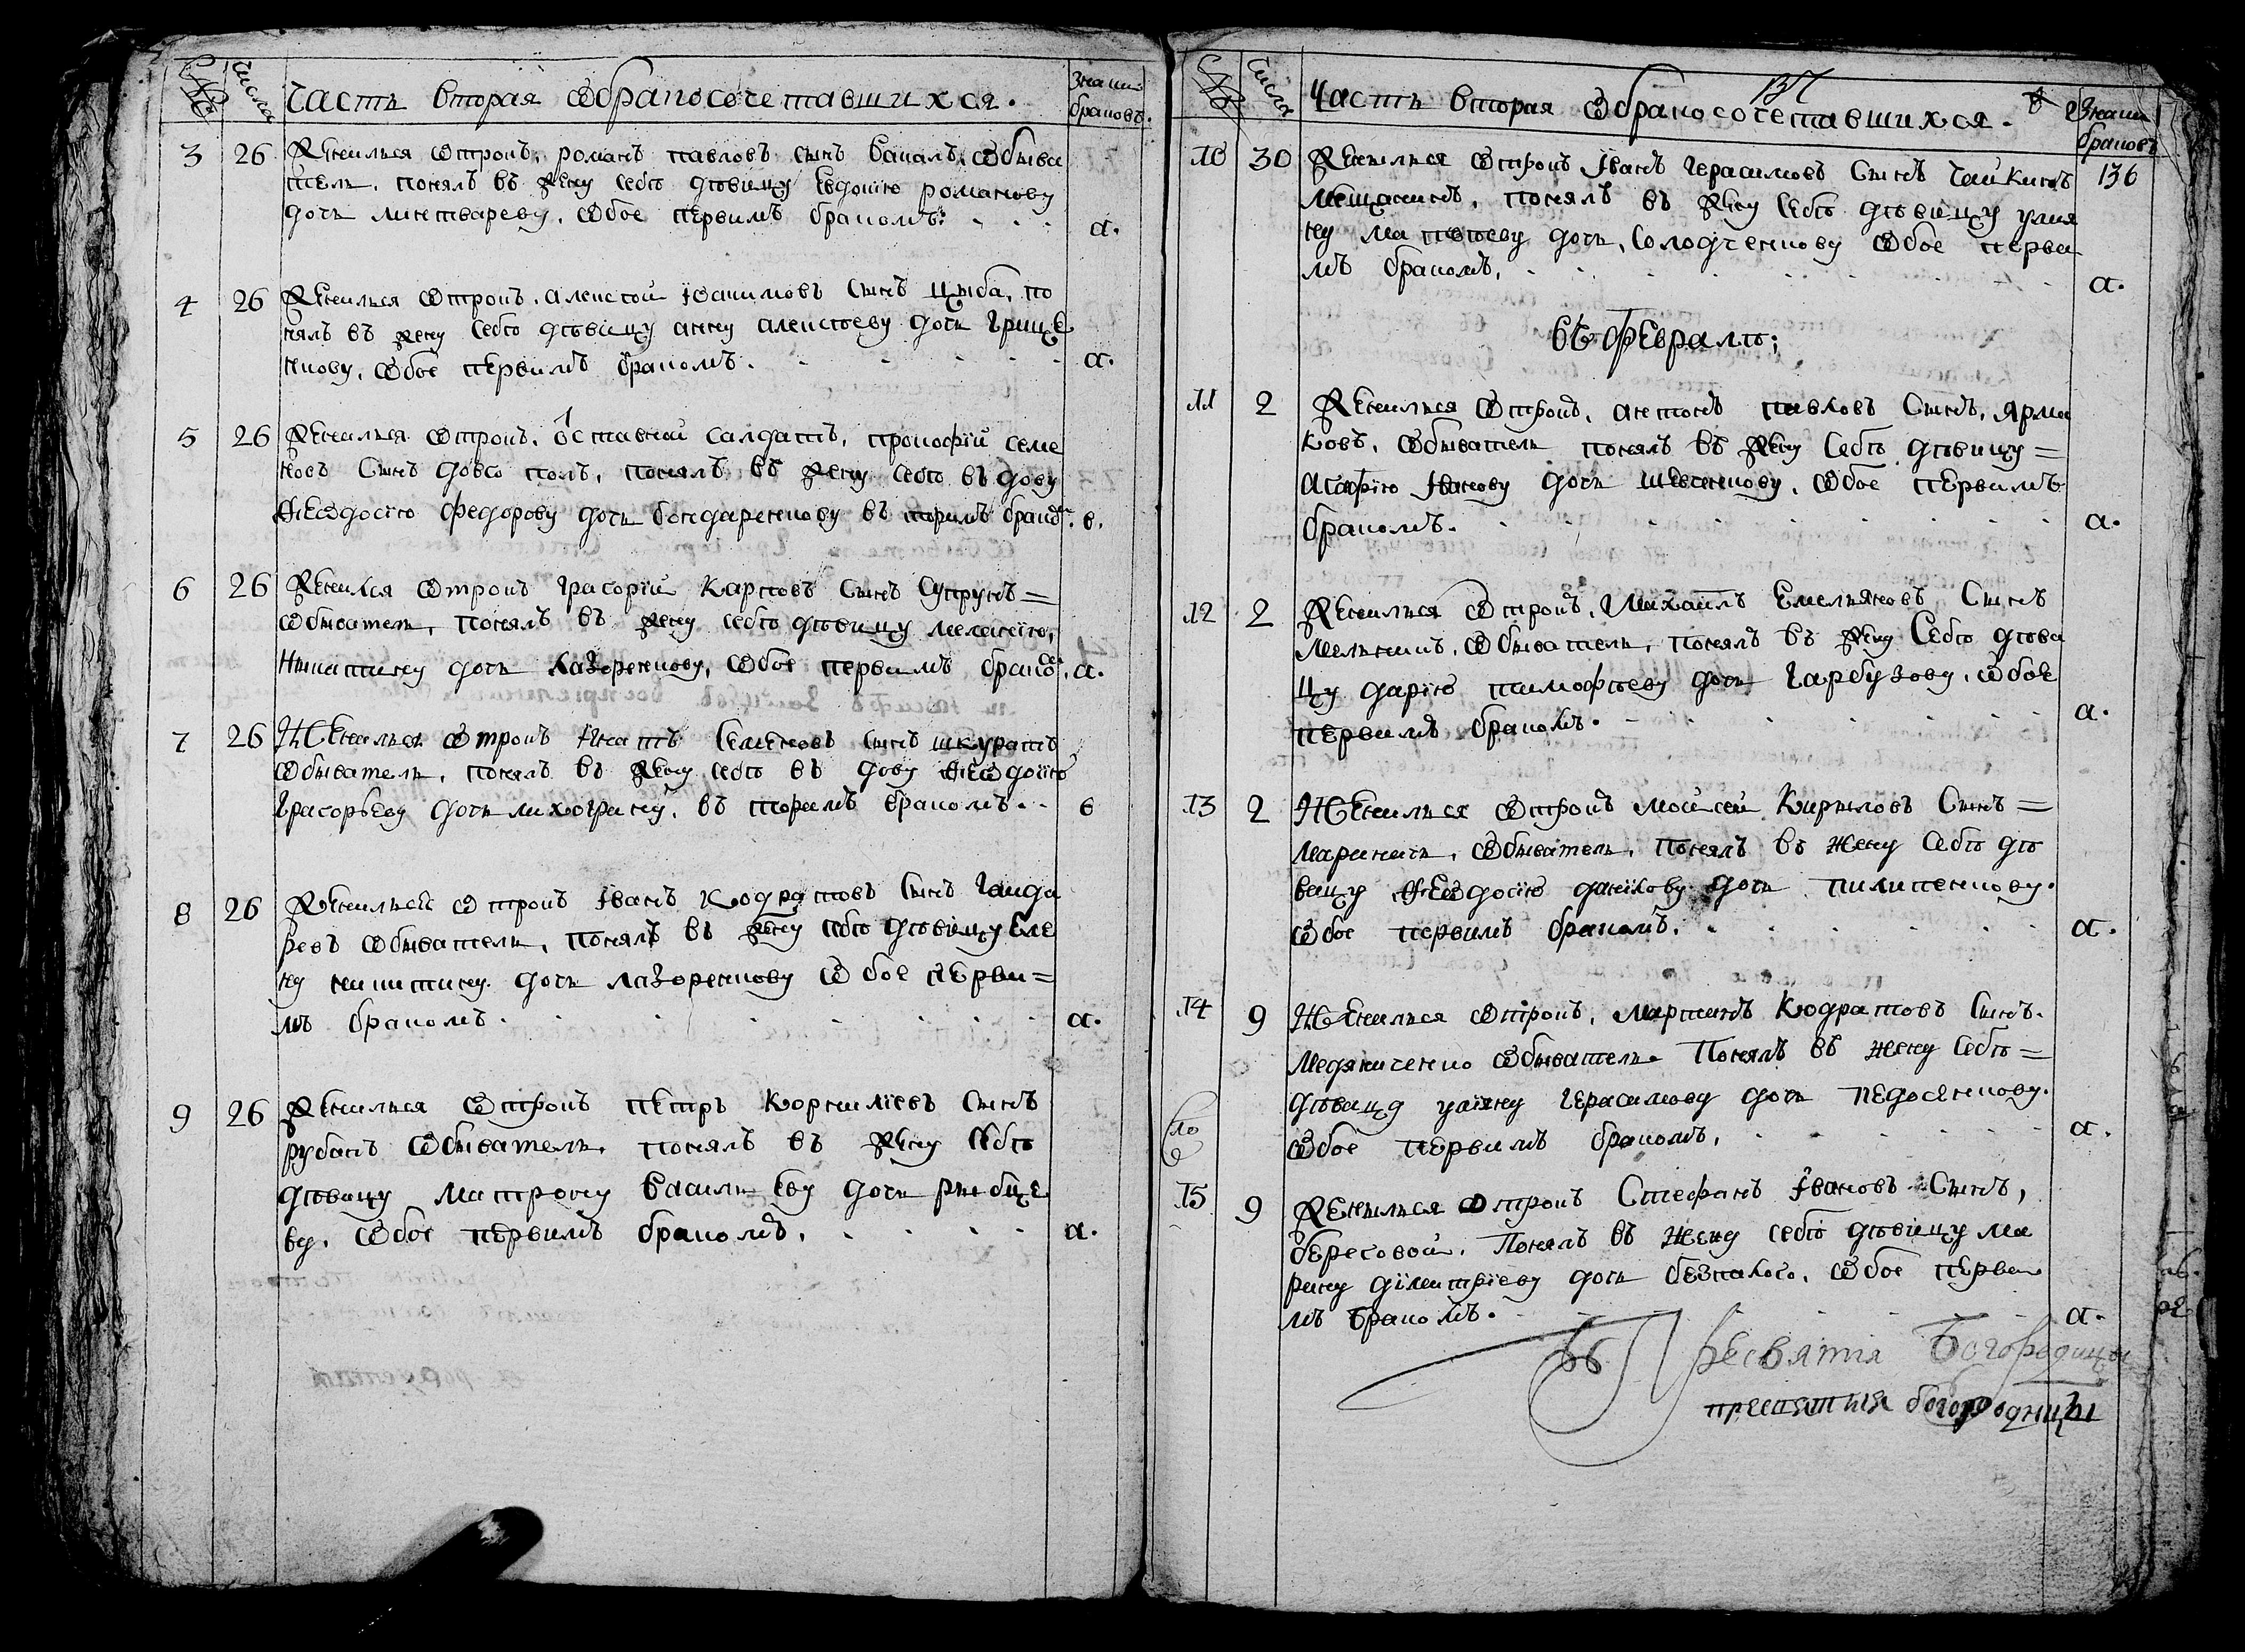 Числа
Часть вторая ѡбракосочетавшихся.
Знаки
браковъ.
3 26 Женилъся ѡтрокъ, романъ павловъ сынъ Бакалъ, ѡбыва
тель, понялъ въ жену себѣ дѣвицу Евдокію романову
дочь линтвареву, ѡбое первимъ бракомъ: а.
4 26 Женилъся ѡтрокъ, алексѣй Іѡакимовъ Сынъ Цыба, по
нялъ въ жену себѣ дѣвицу анну алексѣеву дочь Грище
нкову, ѡбое первимъ бракомъ. а.
5 26 Женилъся ѡтрокъ, ѻставной салдатъ, прокофїй семе
новъ Сынъ довгополъ, понялъ въ жену себѣ въдову
Ѳеѡдосію федорову дочь бондаренкову въторимъ брако. в.
6 26 Женился ѡтрокъ Григорїй Карповъ Сынъ Супрунъ =
ѡбыватель, понялъ въ жену себѣ дѣвицу меланїю,
Никитину дочь Лазоренкову, ѡбое первимъ брако. а.
7 26 Женилъся ѡтрокъ Игнатъ Семеновъ сынъ шкуратъ
ѡбыватель, понялъ въ жену себѣ въдову Ѳеѡдосїю
Григорьеву дочь лихогрину, въторимъ бракомъ. в
8 26 Женилъся ѡтрокъ Іванъ Кодратовъ Сынъ Гайда
ревъ ѡбыватель, понялъ въ жену себѣ дѣвицу Еле
ну никитину дочь лазоренкову ѡбое перви=
мъ бракомъ. а.
9 26 Женилъся ѡтрокъ петръ Корнилїевъ Сынъ
рубанъ ѡбыватель, понялъ въ жену себѣ
дѣвицу Матрону Василькву дочь рибце
ву, ѡбое первимъ бракомъ. а.
Числа
Часть вторая ѡбракосочетавшихся.
Знаки
браковъ
136
10 30 Женилъся ѡтрокъ Іванъ Герасимовъ Сынъ Чайкинъ
мещанинъ, понялъ въ жену себѣ дѣвицу улия
ну матвѣеву дочь, Солодченкову ѡбое перви
мъ бракомъ, а.
въ Февралѣ;
11 2 Женилъся ѡтрокъ, антонъ павловъ Сынъ, Ярма
ковъ, ѡбыватель понялъ въ жену себѣ дѣвицу =
Агафїю Іванову дочь шевченкову, ѡбое первимъ
бракомъ. а.
12 2 Женилъся ѡтрокъ, Михаилъ Емельяновъ Сынъ
мельникъ, ѡбыватель, понялъ въ жену Себѣ дѣви
цу дарїю тимофѣеву дочь Гарбузову, ѡбое
первимъ бракомъ. а.
13 2 Женилъся ѡтрокъ мойсей Кириловъ Сынъ =
мариничь, ѡбыватель, понялъ въ жену себѣ дѣ
вицу Ѳеѡдосїю данїлову дочь пилипенкову.
ѡбое первимъ бракомъ. а.
14 9 Женилъся ѡтрокъ, мартинъ Кодратовъ Сынъ.
медяниченко ѡбыватель. Понялъ въ жену себѣ =
дѣвицу уляну Герасимову дочь педосенкову.
ѡбое первимъ бракомъ, а.
15 9 Женилъся ѡтрокъ Стефанъ Івановъ Сынъ,
береговой. Понялъ въ жену себѣ дѣвицу ма
рину дїмитрїеву дочь безпалого, ѡбое перви
мъ бракомъ. а.
Пресвятія Богородицы
пресвятыя богородицы